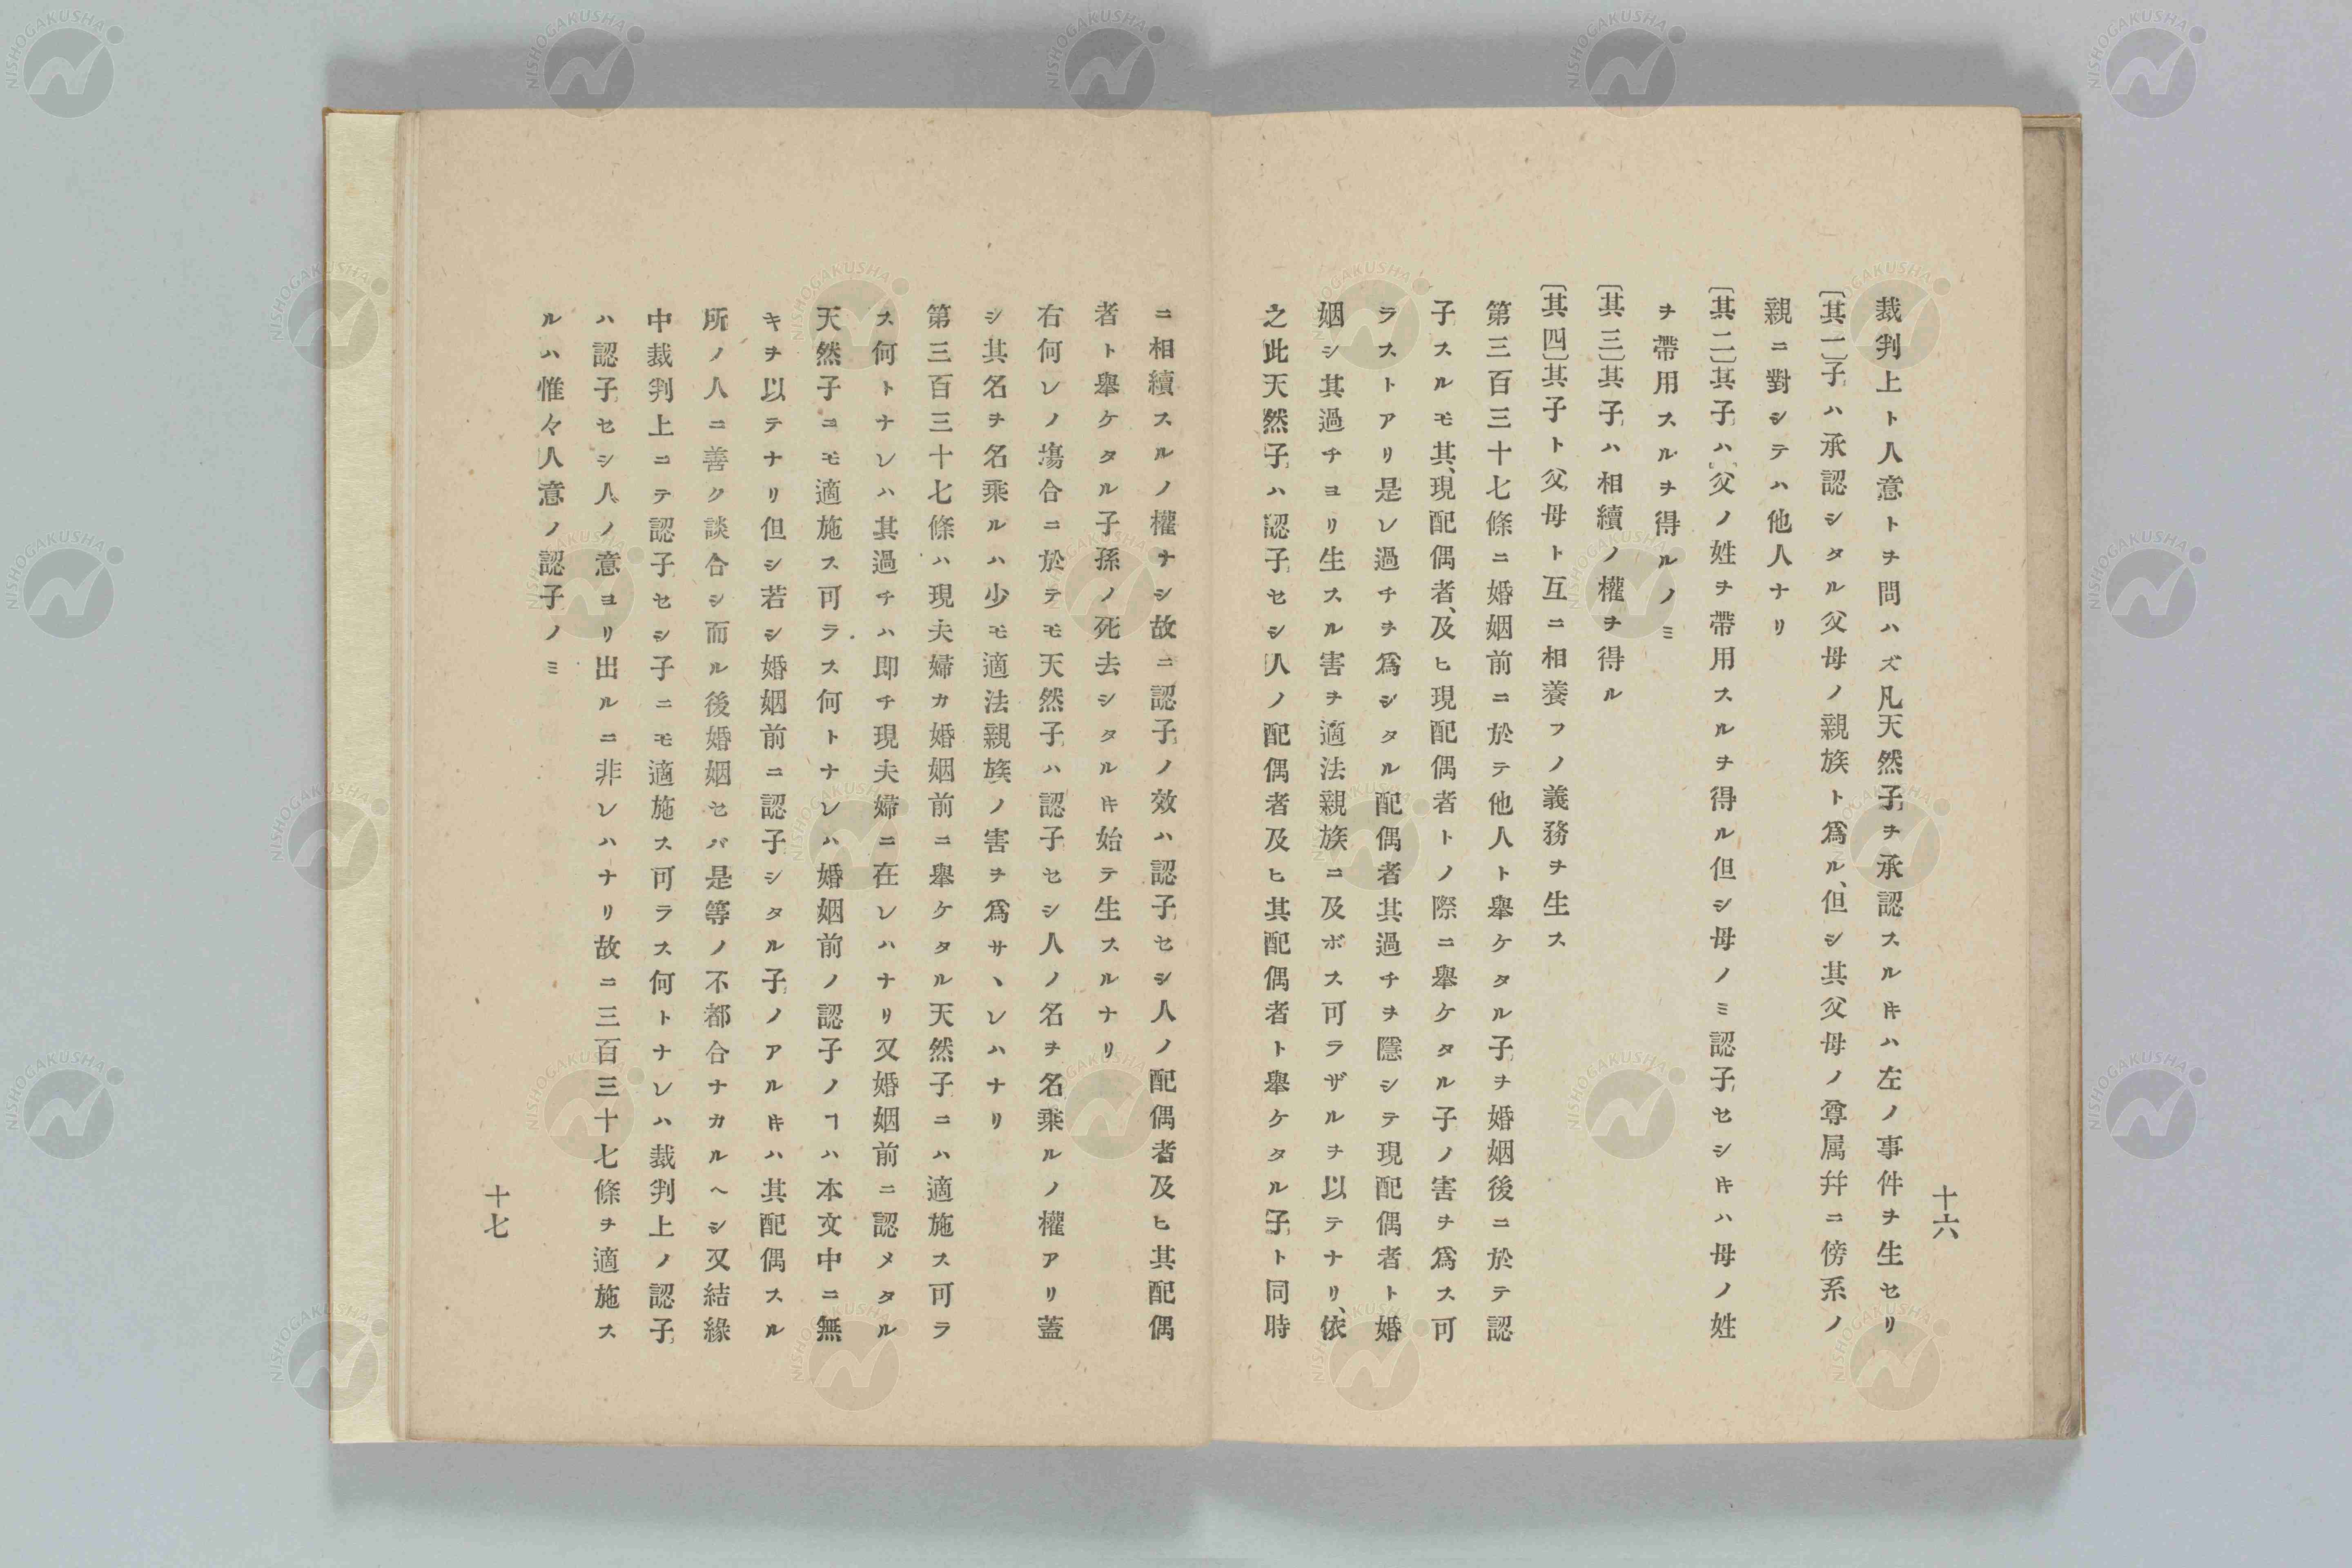 十六
裁判上ト人意トヲ問ハズ凡天然子ヲ承認スルㇳキハ左ノ事件ヲ生セリ
〔其一〕子ハ承認シタル父母ノ親族ト爲ル、但シ其父母ノ尊属幷ニ傍系ノ
親ニ對シテハ他人ナリ
〔其二〕其子ハ、父ノ姓ヲ帶用スルヲ得ル但シ母ノミ認子セシㇳキハ母ノ姓
ヲ帶用スルヲ得ルノミ
〔其三〕其子ハ相續ノ權ヲ得ル
〔其四〕其子ト父母ト互ニ相養フノ義務ヲ生ス
第三百三十七條ニ婚姻前ニ於テ他人ト擧ケタル子ヲ婚姻後ニ於テ認
子スルモ其、現配偶者、及ヒ現配偶者トノ際ニ擧ケタル子ノ害ヲ爲ス可
ラストアリ是レ過チヲ爲シタル配偶者其過チヲ隱シテ現配偶者ト婚
姻シ其過チヨリ生スル害ヲ適法親族ニ及ボス可ラザルヲ以テナリ、依
之此天然子ハ認子セシ人ノ配偶者及ヒ其配偶者ト擧ケタル子ト同時
ニ相續スルノ權ナシ故ニ認子ノ效ハ認子セシ人ノ配偶者及ヒ其配偶
者ト擧ケタル子孫ノ死去シタルㇳキ始テ生スルナリ
右何レノ塲合ニ於テモ天然子ハ認子セシ人ノ名ヲ名乘ルノ權アリ蓋
シ其名ヲ名乘ルハ少モ適法親族ノ害ヲ爲サヽレハナリ
第三百三十七條ハ現夫婦カ婚姻前ニ擧ケタル天然子ニハ適施ス可ラ
ス何トナレハ其過チハ即チ現夫婦ニ在レハナリ又婚姻前ニ認メタル
天然子ニモ適施ス可ラス何トナレハ婚姻前ノ認子ノヿハ本文中ニ無
キヲ以テナリ但シ若シ婚姻前ニ認子シタル子ノアルㇳキハ其配偶スル
所ノ人ニ善ク談合シ而ル後婚姻セバ是等ノ不都合ナカルヘシ又結緣
中裁判上ニテ認子セシ子ニモ適施ス可ラス何トナレハ裁判上ノ認子
ハ認子セシ人ノ意ヨリ出ルニ非レハナリ故ニ三百三十七條ヲ適施ス
ルハ惟々人意ノ認子ノミ
十七
NISHOGAKUSHA